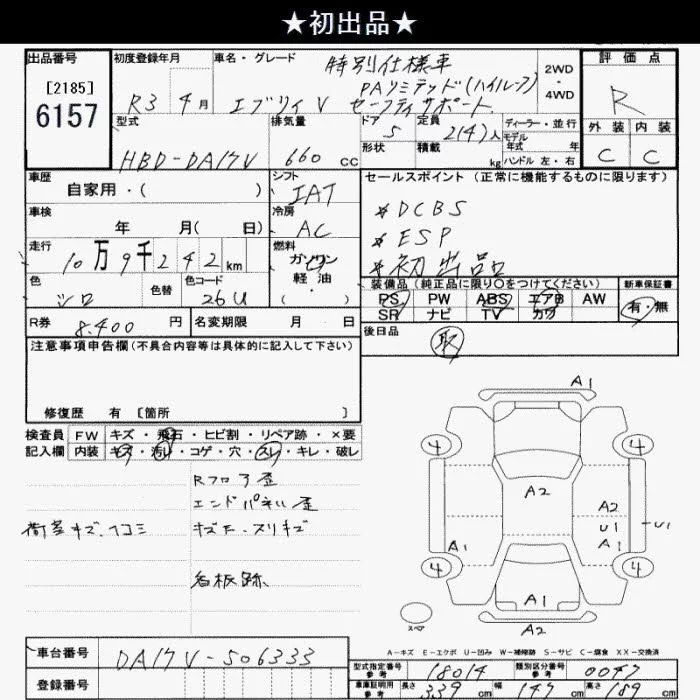 ★初出品★
出品番号 初度登録年月 車名・グレード 特別仕様車 評価点
[2185] PAリミテッド(ハイルーフ) 2WD
6157 R3 4月 エブリィV セーフティサポート ・ 4WD R
型式 排気量 ドア 5 定員 2(4)人 ディーラー・並行 外装 内装
HBD-DA17V 660 CC 形状 積載 kg モデル年式 年 ハンドル 左・右 C C
車歴 シフト IAT セールスポイント(正常に機能するものに限ります)
自家用・( ) ＊DCBS
車検 冷房
年 月( 日) AC ＊ESP
走行 燃料 ＊初出品
10万9千242km ガソリン・軽油・
色 色替 色コード 装備品(純正品に限り○をつけてください) 新車保証書
シロ 26U PS PW ABS エアB AW 有・無
R券 8,400 円 名変期限 月 日 SR ナビ TV カワ
後日品
注意事項申告欄(不具合内容等は具体的に記入して下さい) 取
修復歴 有 [箇所 ]
検査員 FW キズ・飛石・ヒビ割・リペア跡・×要
記入欄 内装 キズ・汚れ・コゲ・穴・スレ・キレ・破レ
Rフロア歪
エンドパネル歪
荷室キズ、凹コミ キズ下・スリキズ
看板跡
A1
4 4
A2
A2
U1 U1
A1 A1
4 4
A1
スペア A2
A-キズ E-エクボ U-凹み W-補修跡 S-サビ C-腐食 XX-交換済
車台番号 DA17V-506333
登録番号
型式指定番号 参考 18014 類別区分番号 参考 0047
車庫証明用 参考 長さ 339 cm 幅 147 cm 高さ 189 cm